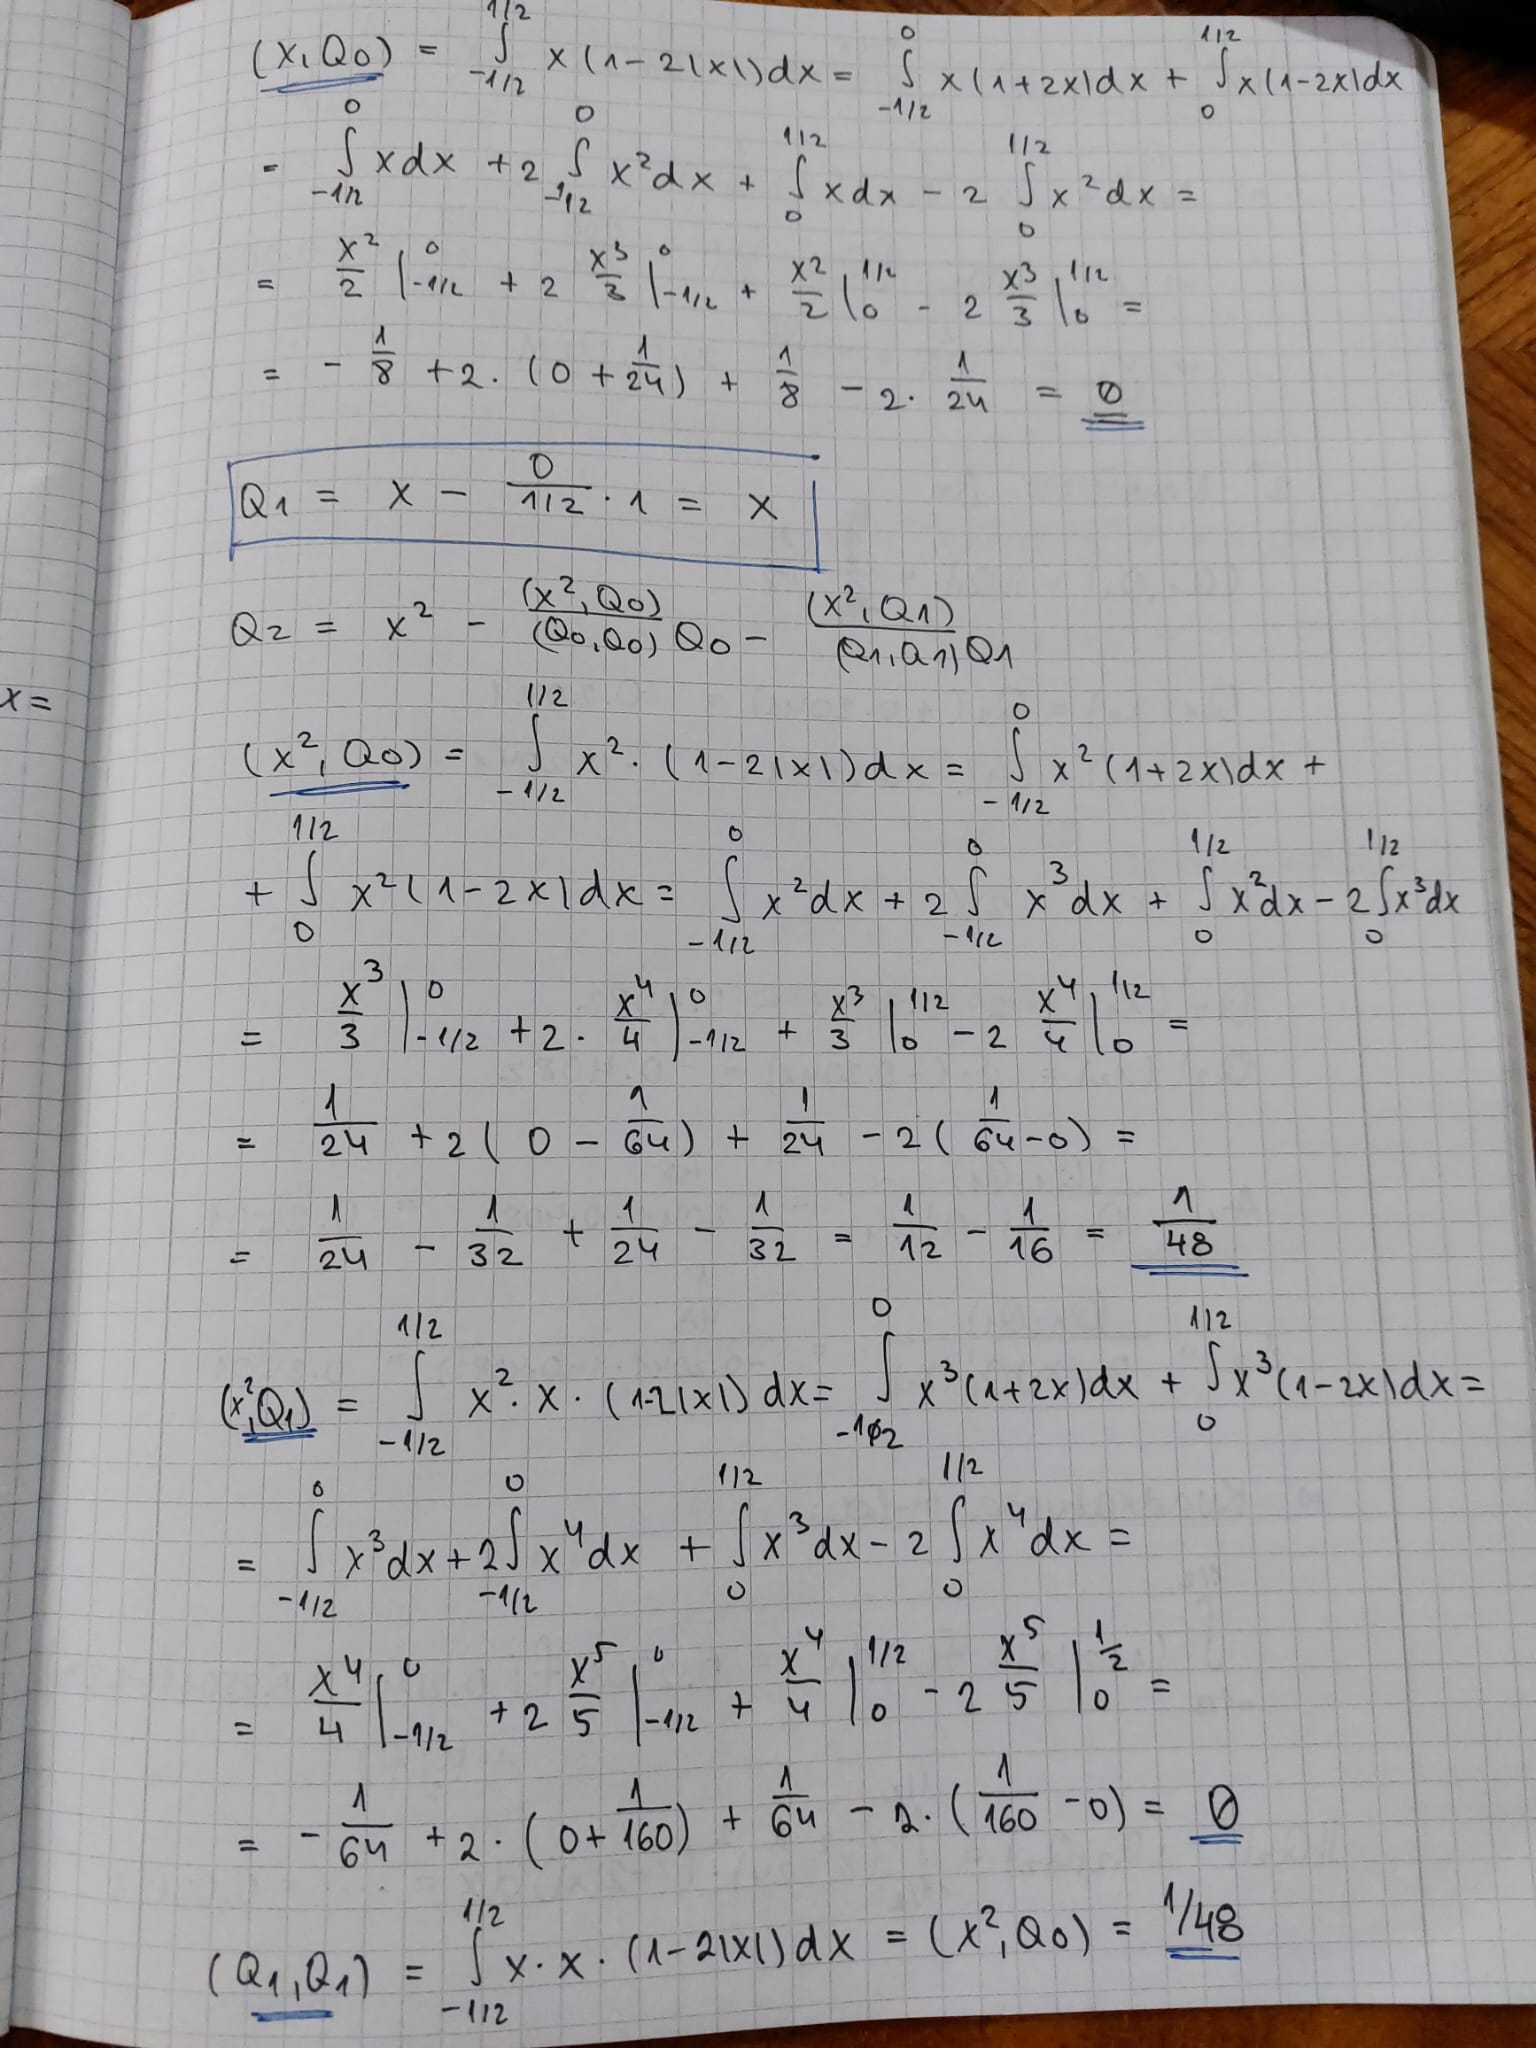 (x,Q0) = ∫_{-1/2}^{1/2} x(1-2|x|)dx = ∫_{-1/2}^{0} x(1+2x)dx + ∫_{0}^{1/2} x(1-2x)dx
= ∫_{-1/2}^{0} xdx + 2 ∫_{-1/2}^{0} x²dx + ∫_{0}^{1/2} xdx - 2 ∫_{0}^{1/2} x²dx =
= x²/2 |_{-1/2}^{0} + 2 x³/3 |_{-1/2}^{0} + x²/2 |_{0}^{1/2} - 2 x³/3 |_{0}^{1/2} =
= - 1/8 + 2·(0 + 1/24) + 1/8 - 2· 1/24 = 0
Q1 = x - 0/(1/2) · 1 = x
Q2 = x² - (x²,Q0)/(Q0,Q0) Q0 - (x²,Q1)/(Q1,Q1) Q1
x=
(x²,Q0) = ∫_{-1/2}^{1/2} x²·(1-2|x|)dx = ∫_{-1/2}^{0} x²(1+2x)dx +
+ ∫_{0}^{1/2} x²(1-2x)dx = ∫_{-1/2}^{0} x²dx + 2∫_{-1/2}^{0} x³dx + ∫_{0}^{1/2} x²dx - 2∫_{0}^{1/2} x³dx
= x³/3 |_{-1/2}^{0} + 2· x⁴/4 |_{-1/2}^{0} + x³/3 |_{0}^{1/2} - 2 x⁴/4 |_{0}^{1/2} =
= 1/24 + 2(0 - 1/64) + 1/24 - 2(1/64 - 0) =
= 1/24 - 1/32 + 1/24 - 1/32 = 1/12 - 1/16 = 1/48
(x²,Q1) = ∫_{-1/2}^{1/2} x²·x·(1-2|x|)dx = ∫_{-1/2}^{0} x³(1+2x)dx + ∫_{0}^{1/2} x³(1-2x)dx =
= ∫_{-1/2}^{0} x³dx + 2∫_{-1/2}^{0} x⁴dx + ∫_{0}^{1/2} x³dx - 2∫_{0}^{1/2} x⁴dx =
= x⁴/4 |_{-1/2}^{0} + 2 x⁵/5 |_{-1/2}^{0} + x⁴/4 |_{0}^{1/2} - 2 x⁵/5 |_{0}^{1/2} =
= - 1/64 + 2·(0 + 1/160) + 1/64 - 2·(1/160 - 0) = 0
(Q1,Q1) = ∫_{-1/2}^{1/2} x·x·(1-2|x|)dx = (x²,Q0) = 1/48